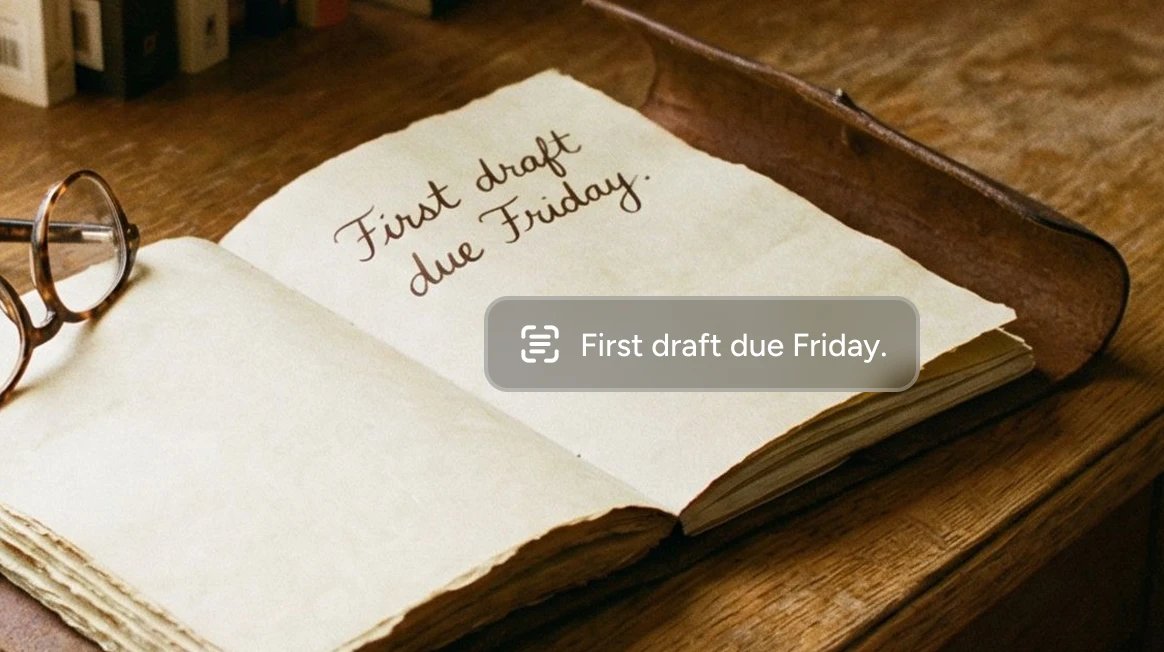 First draft
due Friday.
First draft due Friday.